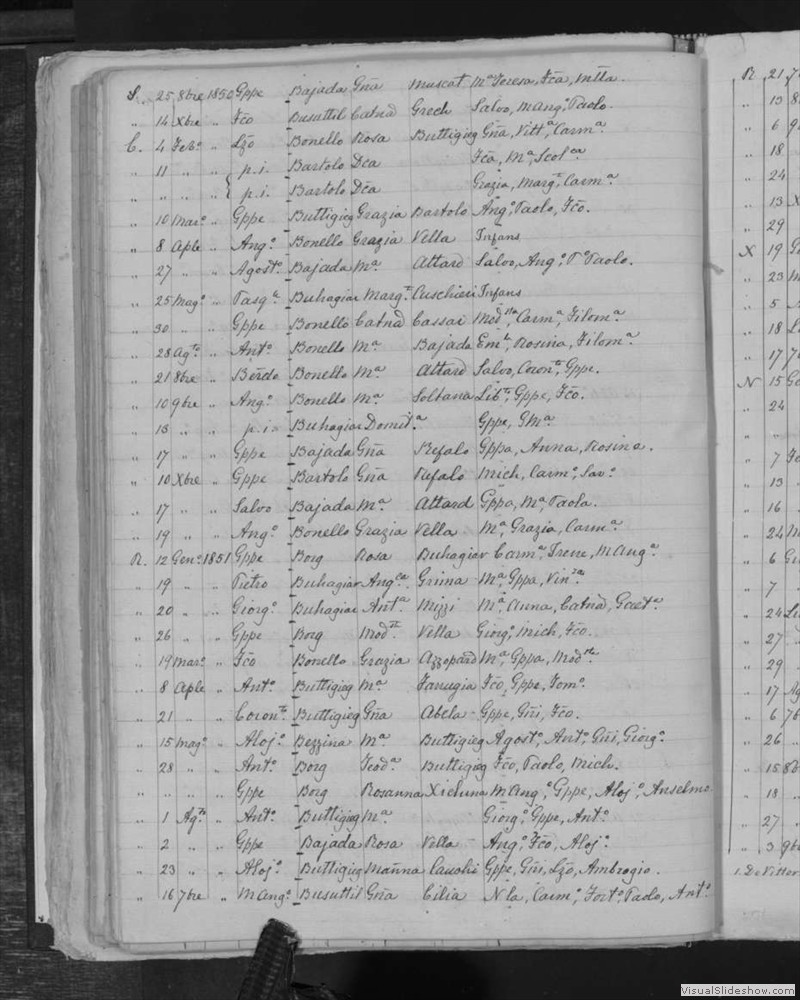 S. 25 8bre 1850 Gppe Bajada Gña Muscat Mª Teresa, Fca,
" 14 Xbre " Fco Busuttil Catnã Grech Salvo, M Angº, Paolo.
C. 4 Febº " Lzo Bonello Rosa Buttigieg Gña, Vittª, Carmª.
" 11 " " p.i. Bartolo Dca Fca, Mª, Scolca
" " " " p.i. Bartolo Dca Grazia, Margª, Carmª.
" 10 Marº " Gppe Buttigieg Grazia Bartolo Angº, Paolo, Fco.
" 8 Aple " Angº Bonello Grazia Vella Infans
" 27 " " Agostº Bajada Mª Attard Salvo, Angº, Paolo.
" 25 Magº " Pasqle Buhagiar Margª Cuschieri Infans
" 30 " " Gppe Bonello Catnã Cassar Modsta, Carmª, Filomª
" 28 Agto " Antº Bonello Mª Bajada Emª, Rosina, Filomª
" 21 8bre " Berdo Bonello Mª Attard Salvo, Coronto, Gppe.
" 10 9bre " Angº Bonello Mª Soltana Gppe, Fco.
" 13 " " p.i. Buhagiar Domitª Gppe, GMª
" 17 " " Gppe Bajada Gña Refalo Gppa, Anna, Rosina.
" 10 Xbre " Gppe Bartolo Gña Refalo Mich, Carmº, Savº
" 17 " " Salvo Bajada Mª Attard Gppa, Mª, Paola.
" 19 " " Angº Bonello Grazia Vella Mª, Grazia, Carmª
R. 12 Genº 1851 Gppe Borg Rosa Buhagiar Carmª, Irene, M Angª
" 19 " " Pietro Buhagiar Angca Grima Mª, Gppa, Vinza
" 20 " " Giorgº Buhagiar Antª Mizzi Mª, Anna, Catnã, Gaetª
" 26 " " Gppe Borg Modta Vella Giorgº, Mich, Fco.
" 19 Marº " Fco Bonello Grazia Azzopardi Mª, Gppa, Modsta
" 8 Aple " Antº Buttigieg Mª Farrugia Fco, Gppe, Tomº
" 21 " " Coronto Buttigieg Gña Abela Gppe, Gñi, Fco.
" 15 Magº " Alojº Bezzina Mª Buttigieg Agostº, Antº, Gñi, Giorgº
" 28 " " Antº Borg Teodª Buttigieg Fco, Paolo, Mich.
" " " " Gppe Borg Rosanna Xicluna M Angº, Gppe, Alojº, Anselmo
" 1 Agto " Antº Buttigieg Mª Giorgº, Gppe, Antº
" 2 " " Gppe Bajada Rosa Vella Angº, Fco, Alojº
" 23 " " Alojº Buttigieg Mañna Cauchi Gppe, Gñi, Lzo, Ambrogio.
" 16 7bre " M Angº Busuttil Gña Cilia Nla, Carmº, Fortº, Paolo, Antº
R 21
" 13
" 6
" 18
" 24
" 13 X
" 29
X 19
" 23
" 5
" 18
" 17
N 15
" 24
" "
" 7
" 13
" 16
" 24
" 6
" 7
" 24
" 27
" 29
" 17
" 6
" 26
" 15
" 18
" 27
" 3
VisualSlideshow.com